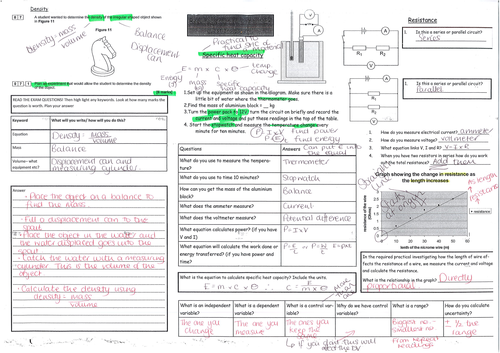 Density
A student wanted to determine the density of the irregular shaped object shown
in Figure 11
Figure 11
Density = mass
volume
Balance
Displacement
can
Plan an experiment that would allow the student to determine the density
of the object.
READ THE EXAM QUESTIONS! Then high light any keywords. Look at how many marks the
question is worth. Plan your answer:
Keyword
What will you write/ how will you do this?
Equation
Density = mass
volume
Mass
Balance
Volume- what
equipment etc
Displacement can and
measuring cylinder
Answer
• Place the object on a balance to
find the mass.
• Fill a displacement can to the
spout
• Place the object in the water and
the water displaced goes into the
spout
• Catch the water with a measuring
cylinder. This is the volume of the
object
• Calculate the density using
density = mass
volume
Practical to
find
Specific heat capacity
E = m × c × θ
Temp
change
Energy
(J)
mass
specific
heat capacity
1.Set up the equipment as shown in the diagram. Make sure there is a
little bit of water where the thermometer goes.
2.Find the mass of aluminium block = __ kg
3.Turn the power pack to 12V, turn the circuit on briefly and record the
current and voltage and put these readings in the top of the table.
4. Start the stopwatch and measure the temperature change every
minute for ten minutes.
P = I × V find power
find energy
Questions
Answers
What do you use to measure the tempera-
ture?
Thermometer
What do you use to time 10 minutes?
Stopwatch
How can you get the mass of the aluminium
block?
Balance
What does the ammeter measure?
Current
What does the voltmeter measure?
Potential difference
What equation calculates power? (if you have
V and I)
P = I × V
What equation will calculate the work done or
energy transferred? (if you have power and
time?
What is the equation to calculate specific heat capacity? Include the units.
E = m × c × θ ∴ c = E
m × θ
What is an independent
variable?
What is a dependent
variable?
What is a control var-
iable?
Why do we have control
variables?
What is a range?
How do you calculate
uncertainty?
The one you
change
The one you
measure
The ones you
keep the
same
Biggest no. -
smallest no
± ½ the
range
from repeat
readings
Resistance
1. Is this a series or parallel circuit?
Series
A
R1
R2
2. Is this a series or parallel circuit?
Parallel
3. How do you measure electrical current? Ammeter
4. How do you measure voltage? Voltmeter
5. What equation links V, I and R? V = I × R
6. When you have two resistors in series how do you work
out the total resistance? Add them
Graph showing the change in resistance as
the length increases
resistance of the wire
(Ohms)
length of the nicrome wire (m)
0 10 20 30 40 50 60
resistance
In the required practical investigating how the length of wire ef-
fects the resistance of a wire, we measure the current and voltage
and calculate the resistance.
What is the relationship on the graph? Directly
proportional